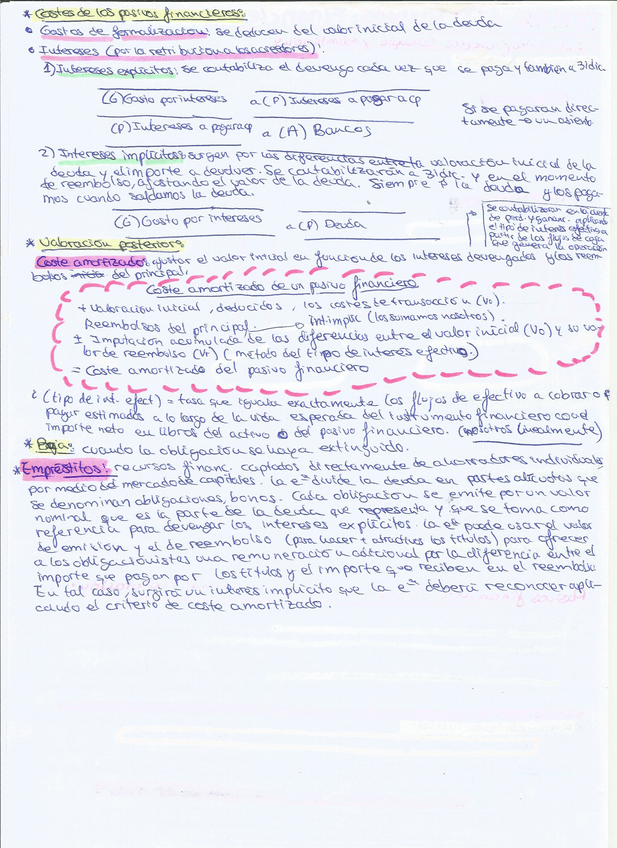 * Costes de los pasivos financieros:
• Gastos de formalización: se deducen del valor inicial de la deuda
• Intereses (por la retribución a los acreedores):
1) Intereses explícitos: se contabiliza el devengo cada vez que se paga y también a 31dic.
(G) Gasto por intereses a (P) Intereses a pagar a cp
(P) Intereses a pagar a cp a (A) Bancos
Si se pagaran direc-
tamente → un asiento
2) Intereses implícitos: surgen por las diferencias entre la valoración inicial de la
deuda y el importe a devolver. Se contabilizarán a 31dic. y en el momento
de reembolso, ajustando el valor de la deuda. Siempre ↑ la deuda y los paga-
mos cuando saldamos la deuda.
(G) Gasto por intereses a (P) Deuda
Se contabilizarán en la cuenta
de pérd. y ganan. aplicando
el tipo de interés efectivo a
partir de los flujos de caja
que genera la operación
* Valoración posterior:
Coste amortizado: ajustar el valor inicial en función de los intereses devengados y los reem-
bolsos del principal:
Coste amortizado de un pasivo financiero
+ Valoración inicial, deducidos, los costes de transacción (V0).
Reembolsos del principal. → int. implíc (los sumamos nosotros).
± Imputación acumulada de las diferencias entre el valor inicial (V0) y su va-
lor de reembolso (Vr) (método del tipo de interés efectivo.)
= Coste amortizado del pasivo financiero
i (tipo de int. efect) = tasa que iguala exactamente los flujos de efectivo a cobrar o a
pagar estimados a lo largo de la vida esperada del instrumento financiero con el
importe neto en libros del activo o del pasivo financiero. (nosotros linealmente)
* Baja: cuando la obligación se haya extinguido.
* Empréstitos: recursos financ. captados directamente de ahorradores individuales
por medio del mercado de capitales. La eª divide la deuda en partes alícuotas que
se denominan obligaciones, bonos. Cada obligación se emite por un valor
nominal que es la parte de la deuda que representa y que se toma como
referencia para devengar los intereses explícitos. La eª puede usar el valor
de emisión y el de reembolso (para hacer + atractivos los títulos) para ofrecer
a los obligacionistas una remuneración adicional por la diferencia entre el
importe que pagan por los títulos y el importe que reciben en el reembolso
En tal caso, surgirá un interés implícito que la eª deberá reconocer apli-
cando el criterio de coste amortizado.